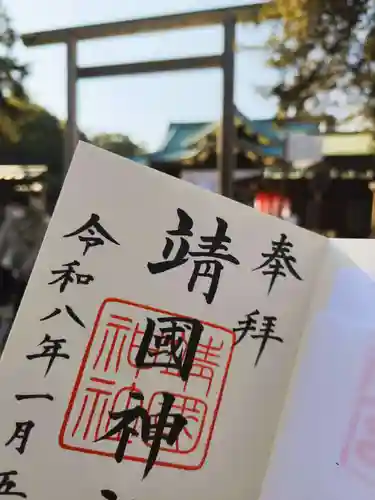 奉拝
靖国神
令和八年一月五
靖国神社